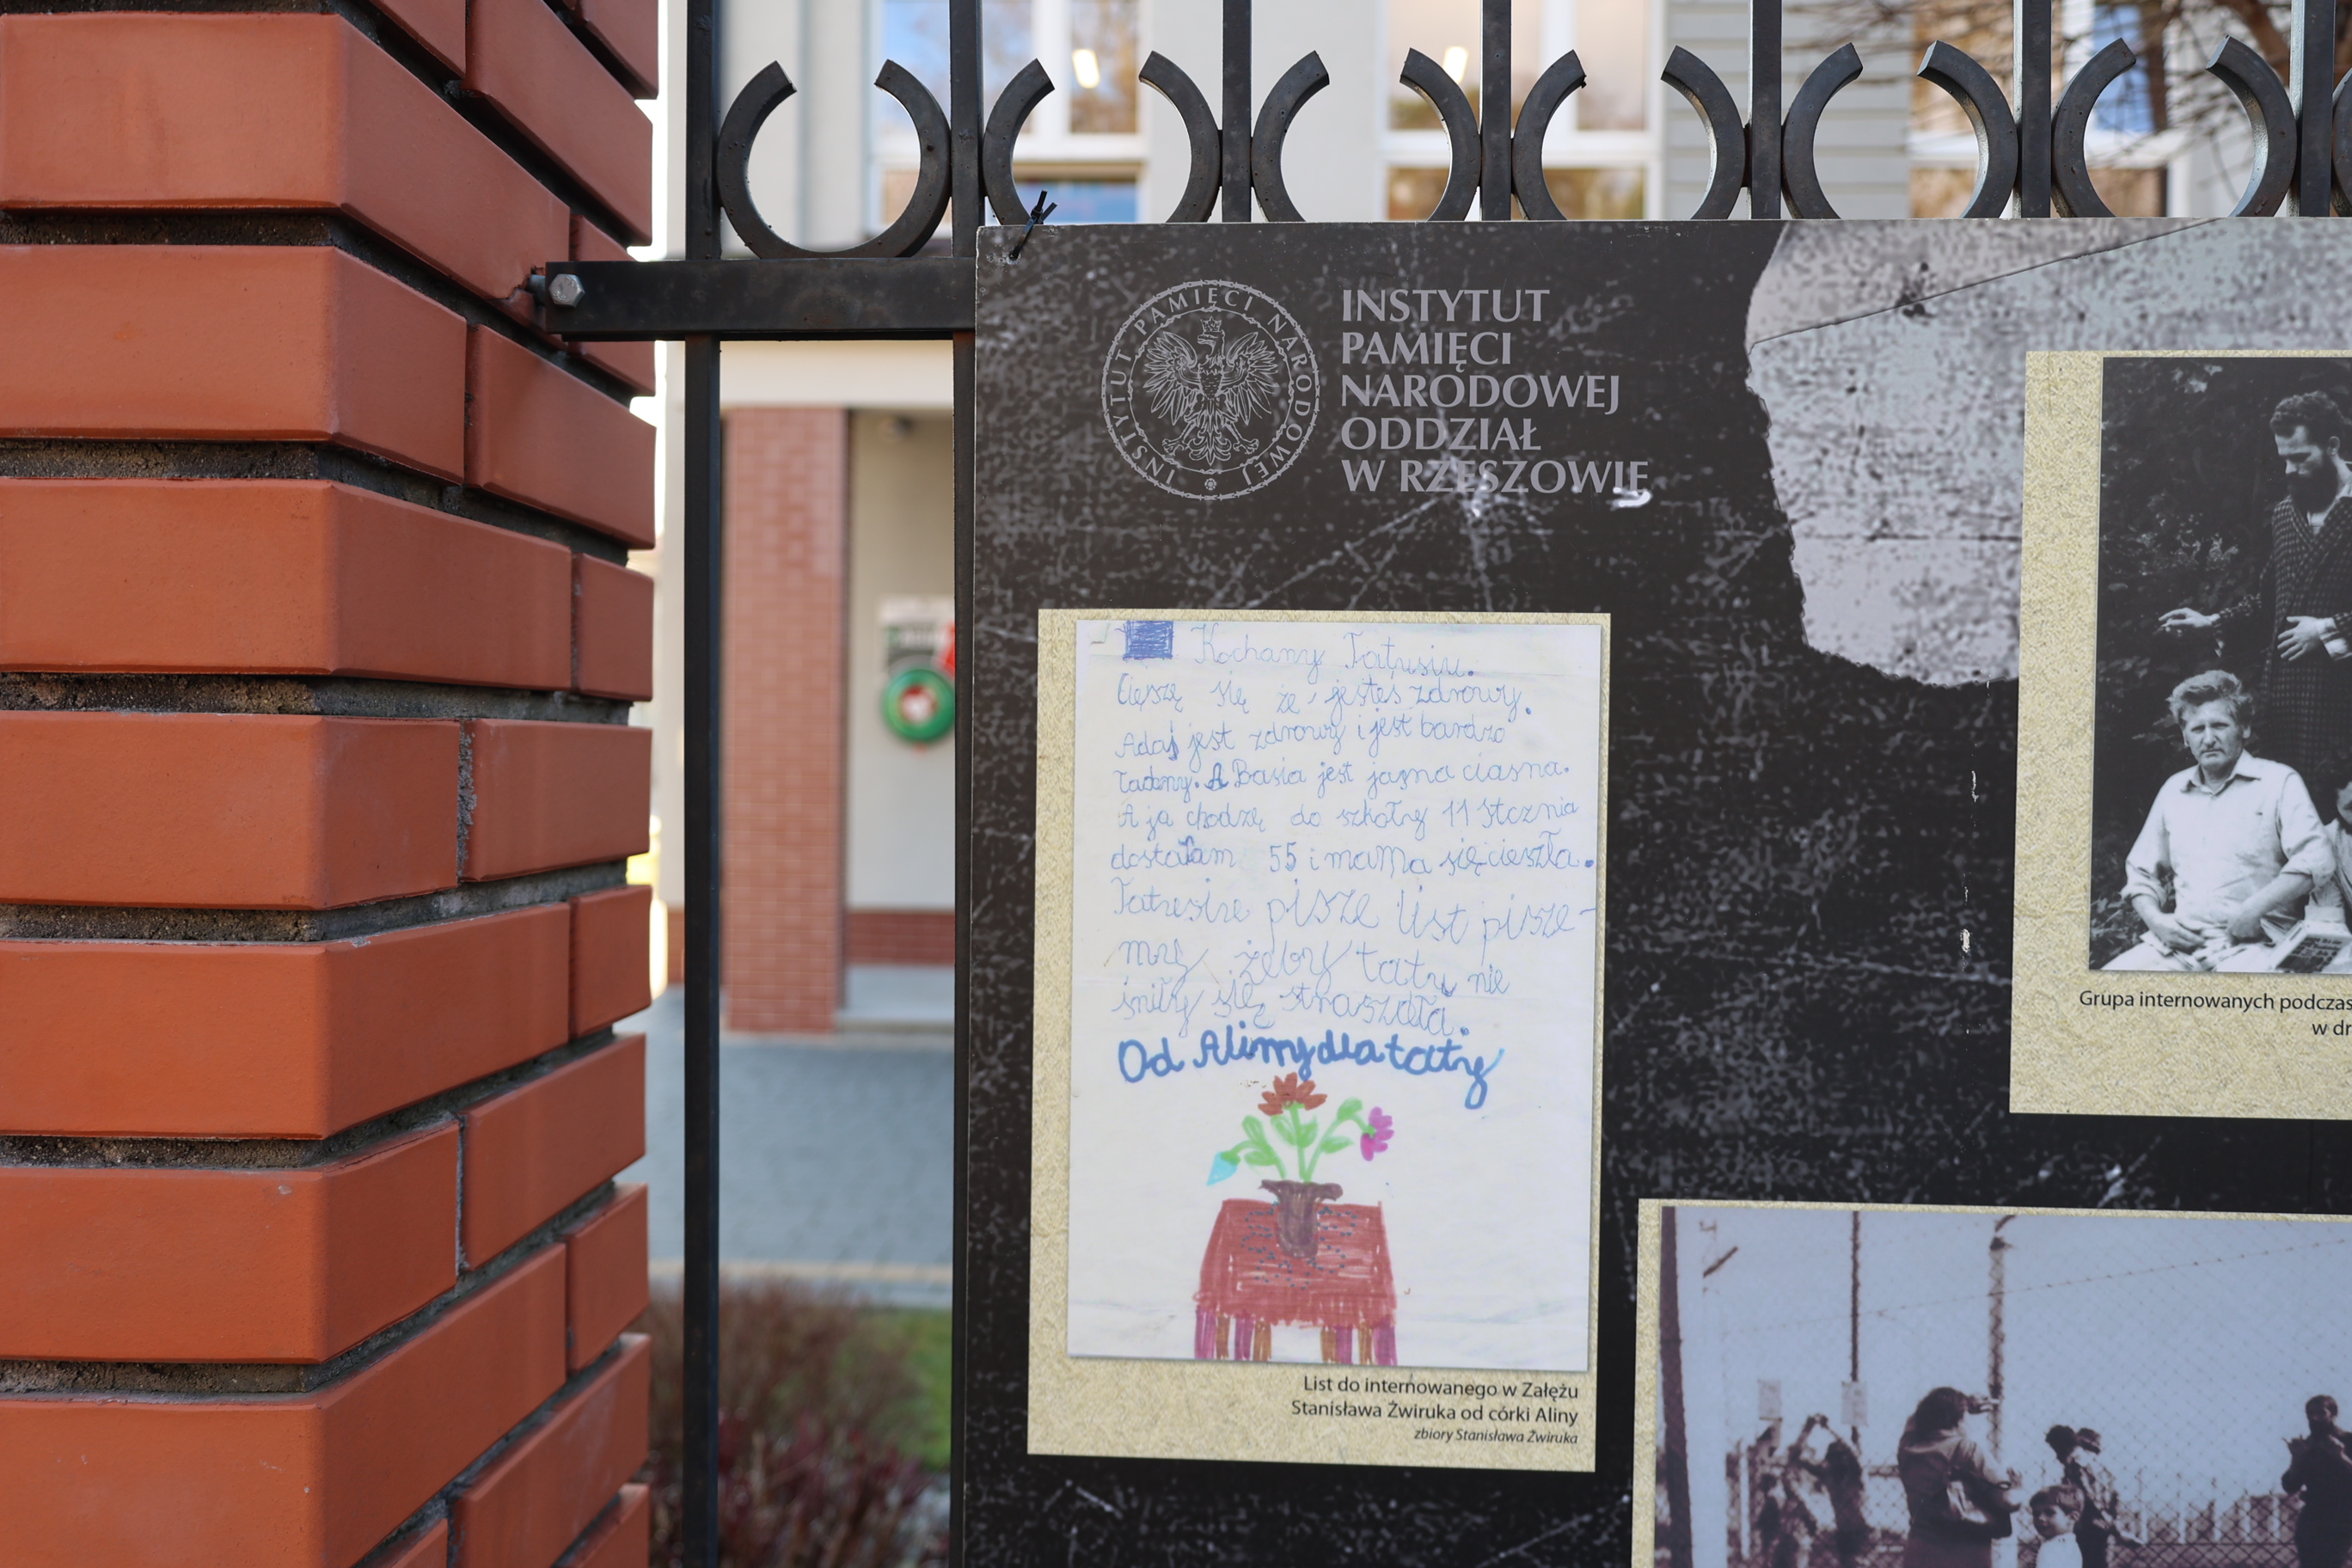 INSTYTUT PAMIĘCI NARODOWEJ
INSTYTUT
PAMIĘCI
NARODOWEJ
ODDZIAŁ
W RZESZOWIE
Kochany Tatusiu.
Cieszę się że jesteś zdrowy.
Adaś jest zdrowy i jest bardzo
ładny. A Basia jest jasna ciasna.
A ja chodzę do szkoły 11 stcznia
dostałam 55 i mama się cieszła.
Tatusiu pisze list pisze-
my żeby tatu nie
śniły się straszdła.
Od Aliny dla taty
List do internowanego w Załężu
Stanisława Żwiruka od córki Aliny
zbiory Stanisława Żwiruka
Grupa internowanych podczas
w dr